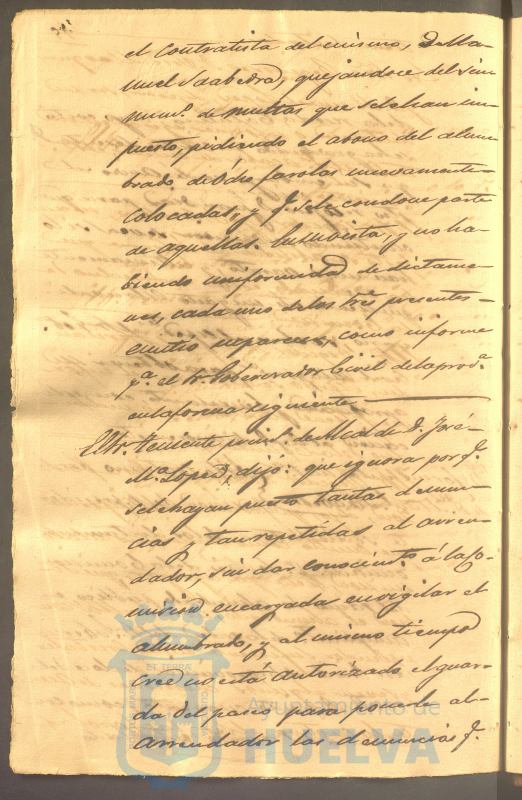 el contratista del mismo, D. Ma-
nuel Saabedra, quejandoce del sin
num.º de multas que sele han im-
puesto, pidiendo el abono del alum-
brado de Ocho farolas nuevamente
colocadas, y q.e sele condone parte
de aquellas. En su vista, y no ha-
biendo uniformidad de dictame-
nes, cada uno de los tres presentes
emitio su parecer, como informe
p.a el Sr. Gobernador Civil de la prov.a
en la forma siguiente
El Sr. teniente prim.º de Alcalde D. José
M.a Lopez, dijó: que ignora por q.e
sele hayan puesto tantas denun-
cias y tan repetidas al arren-
dador, sin dar conocim.to á la Co-
mision encargada en vigilar el
alumbrado, y al mismo tiempo
cree no está autorizado el guar-
da del paseo para ponerle al
Arrendador las denuncias q.e
ET TERRA
Ayuntamiento de
HUELVA